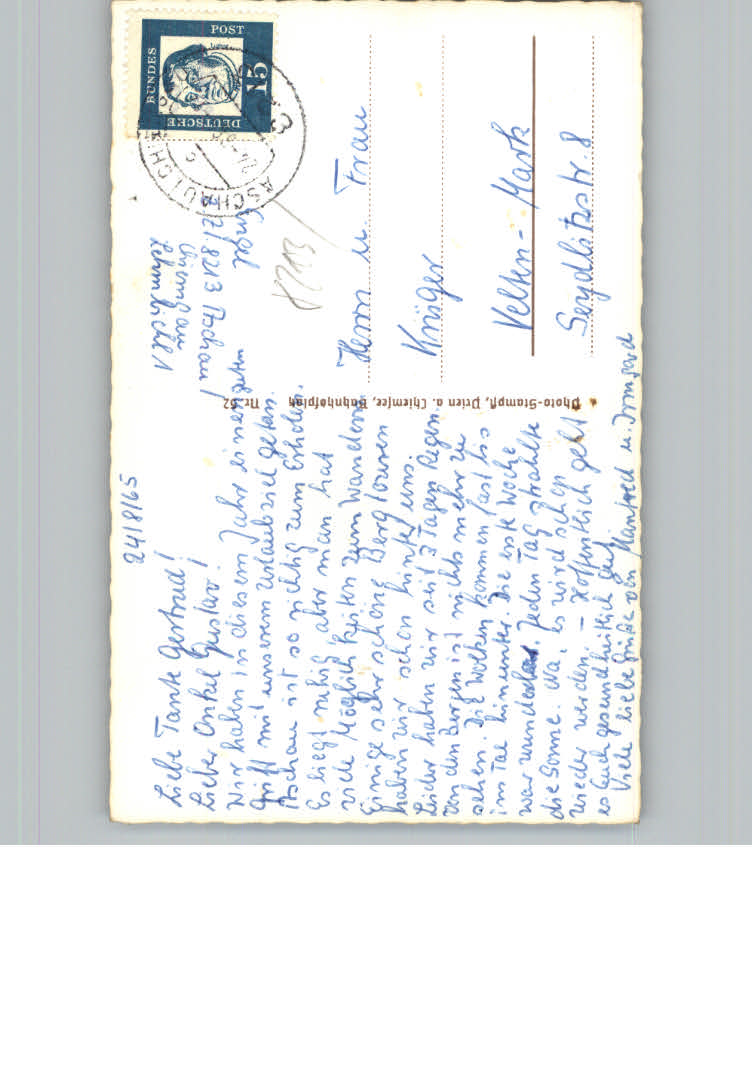 24/8/65
Liebe Tante Gertrud!
Lieber Onkel Gustav!
Wir haben in diesem Jahr einen guten
Griff mit unserem Urlaubsziel getan.
Aschau ist so richtig zum Erholen.
Es liegt ruhig aber man hat
viele Möglichkeiten zum Wandern
Einige sehr schöne Bergtouren
haben wir schon hinter uns.
Leider haben wir seit 3 Tagen Regen.
Von den Bergen ist nichts mehr zu
sehen. Die Wolken kommen fast bis
ins Tal hinunter. Die erste Woche
war wunderbar. Jeden Tag strahlte
die Sonne. Na, es wird schon
wieder werden. – Hoffentlich geht
es Euch gesundheitlich gut
Viele liebe Grüße von Manfred u. Irmgard
Photo-Stampfl, Prien a. Chiemsee, Bahnhofplatz Nr. 52
Engel
z. Zt. 8213 Aschau/
Chiemgau
Lehmbichl 1
BUNDES POST
DEUTSCHE
15
ASCHAU I. CH
8213
Herrn u. Frau
Krüger
Velten-Mark
Seydlitzstr. 8